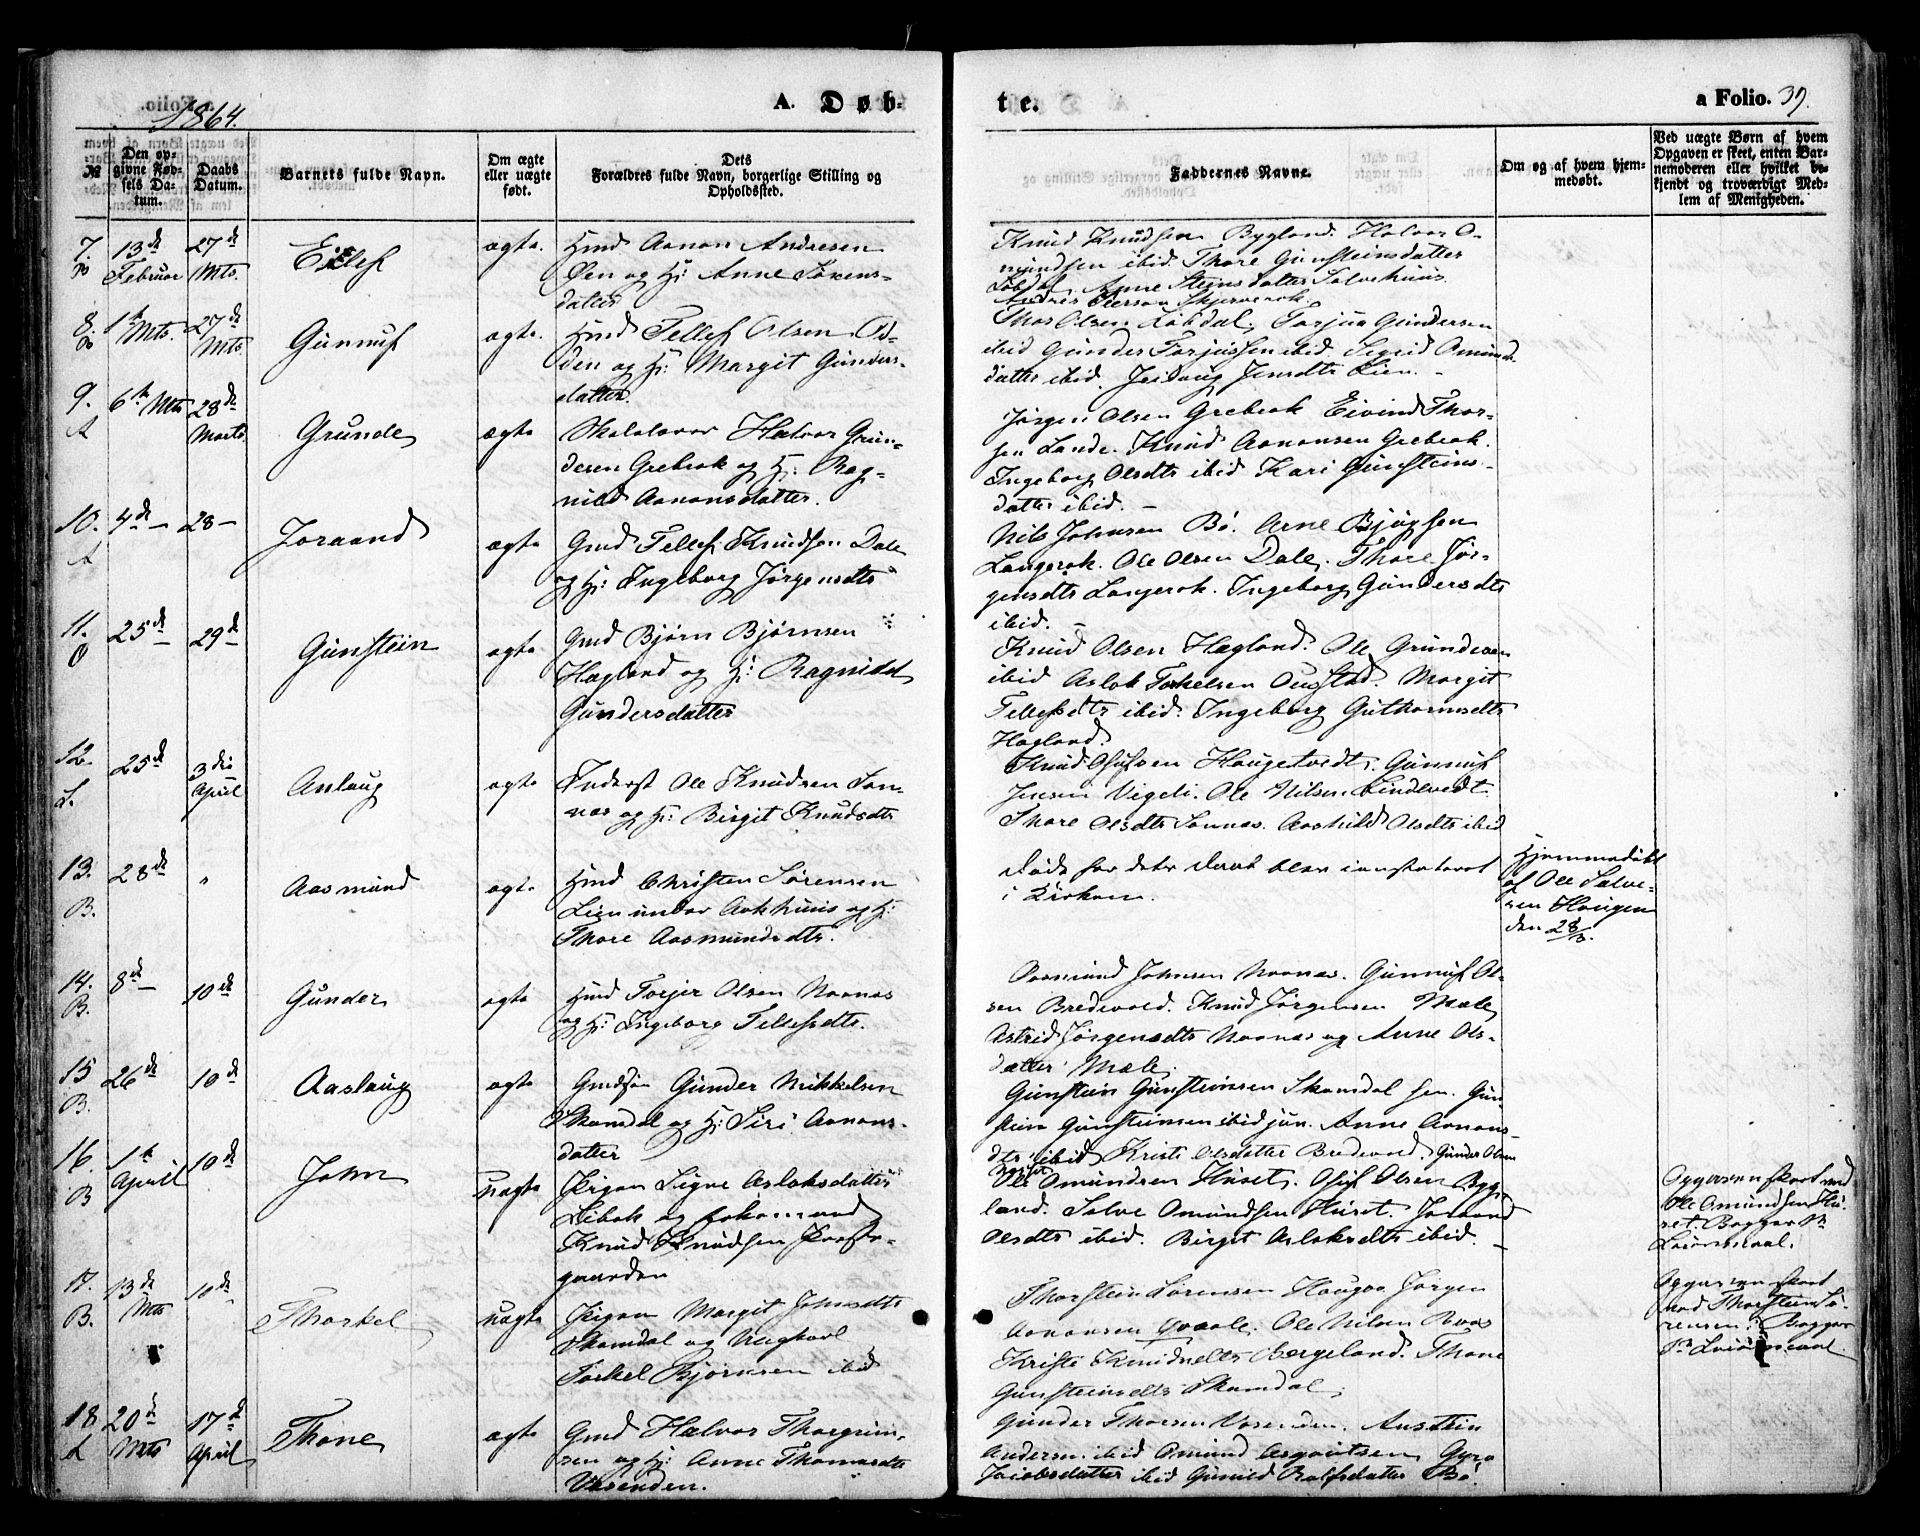 1864.
A. Døb-
te.
a Folio. 39.
№
Den op-
givne Fød-
sels Da-
tum.
Daabs
Datum.
Barnets fulde Navn.
Om ægte
eller uægte
født.
Dets
Forældres fulde Navn, borgerlige Stilling og
Opholdssted.
Faddernes Navne.
Om og af hvem hjem-
medøbt.
Ved uægte Børn af hvem
Opgaven er skeet, enten Bar-
nemoderen eller hvilket be-
kjendt og troværdigt Med-
lem af Menigheden.
7. 13de Februar 27de Mts. Eilef ægte.
Hmd Aanon Andresen
Øen og H: Anne Sørens-
datter
Knud Knudsen Bygland. Halvor O-
mundsen ibid. Thore Gunsteinsdatter
Anne Steinsdatter Salvehuus
8. B 1ste Mts. 27de Mts Gunnuf ægte.
Hmd Tellef Olsen Os-
den og H: Margit Gunders-
datter.
Thor Olsen Torjus Gundersen
ibid Gunder Torjussen ibid Sigrid Omund
datter ibid. Jensdtr Lien.
9. A 6te Mts 28de Marts Grunde ægte
Skolelærer Halvor Grun-
desen Grebrok og H: Rag-
nild Aanonsdatter.
Jørgen Olsen Grebrok Eivind Thor-
sen Lande. Knud Aanonsen Grebrok.
Ingeborg Olsdtr ibid Kari Gunsteins-
datter ibid. —
10. A 4de — 28 — Joraand ægte
Gmd Tellef Knudsen Dale
og H: Ingeborg Jørgensdtr
Nils Johnsen Bø. Arne Bjugsen
Langerok. Ole Olsen Dale. Thore Jør-
gensdtr Langerok. Ingeborg Gundersdtr
ibid. —
11. O 25de — 29de Gunstein ægte
Gmd Bjørn Bjørnsen
Hægland og H: Ragnild
Gundersdatter
Knud Olsen Hægland. Ole Grundesen
ibid Aslak Torkelsen Ousstad. Margit
Tellefsdtr ibid. Ingeborg Guthormsdtr
Hægland.
12. L. 25de 3die April Aslaug ægte
Inderst Ole Knudsen Son-
næs og H: Birgit Knudsdtr
Knud Haugetvedt. Gunnuf
Jensen Vigeli. Ole Nilsen Lindtvedt.
Thore Olsdtr Sonnæs. Aashild Olsdtr ibid
13. B. 28de " Aasmund ægte
Hmd Christen Sørensen
Lien under Aakhuus og H:
Thore Aasmundsdtr.
Døde før dets Daab blev constateret
i Kirken.
Hjemmedøbt
af Ole Salve-
sen Haugen
den 28/3.
14. B. 8de — 10de Gunder ægte
Hmd Torjer Olsen Noomes
og H: Ingeborg Tellefsdtr.
Aasmund Johnsen Noomes. Gunnuf Ol-
sen Bredvold. Knud Jørgensen Mæle
Astrid Jørgensdtr Noomes og Anne Ols-
datter Mæle.
15 B. 26de 10de Aaslaug ægte
Gmdsøn Gunder Mikkelsen
Skamdal og H: Siri Aanons-
datter
Gunstein Gunsteinsen Skamdal sen. Gun
stein Gunsteinsen ibid jun. Anne Aanons-
dtr ibid Kristi Olsdatter Bredvold. Gunder Olsen
16. B 1ste April 10de John uægte
Pigen Signe Aslaksdatter
Libok og
Knud Knudsen Præste-
gaarden
Ole Omundsen Huset. Olsen Byg
land. Salve Omundsen Huset. Joraand
Olsdtr ibid. Birgit Aslaksdtr ibid. —
Opgaven skeet ved
Ole Omundsen Hu-
set. Begge Pr
Leiermaal.
17. B. 13de Mts 10de Thorkel uægte
Pigen Margit Johnsdtr
Skamdal og Ungkarl
Torkel Bjørnsen ibid
Thorstein Sørensen Haugaa Jørgen
Aanonsen Qvaale. Ole Nilsen Roos
Kristi Knudsdtr Bergeland. Thone
Gunsteinsdtr Skamdal.
Opgaven skeet
ved Thorstein Sø-
rensen. Begges
Pr Leiermaal.
18 L 20de Mts 17de April Thone ægte
Gmd Halvor Thorgrim-
sen og H: Anne Thomasdtr
Vasenden.
Gunder Thorsen Vasenden. Austein
Andersen ibid Omund Asgoutsen Gyro
Jacobsdatter ibid Gunild Rolfsdatter Bø.